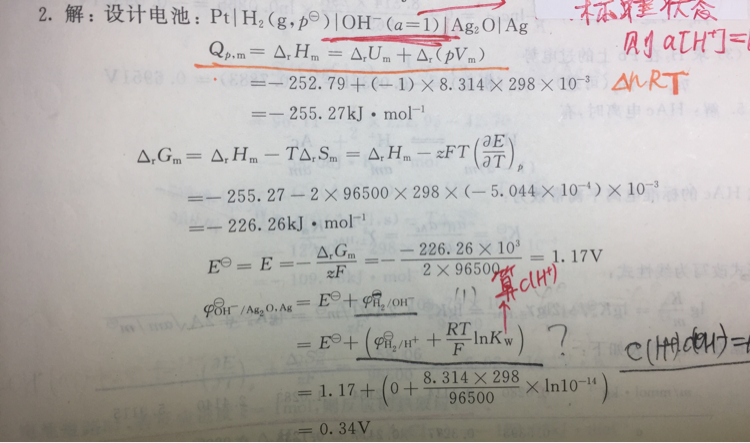 2. 解：设计电池：Pt|H₂(g,p^⊖)|OH⁻(a=1)|Ag₂O|Ag
则 a[H⁺]=
Q_{p,m} = Δ_rH_m = Δ_rU_m + Δ_r(pV_m)
ΔnRT
= −252.79 + (−1) × 8.314 × 298 × 10⁻³
= −255.27kJ·mol⁻¹
Δ_rG_m = Δ_rH_m − TΔ_rS_m = Δ_rH_m − zFT(∂E/∂T)_p
= −255.27 − 2 × 96500 × 298 × (−5.044 × 10⁻⁴) × 10⁻³
= −226.26kJ·mol⁻¹
E^⊖ = E = −Δ_rG_m/zF = −(−226.26 × 10³)/(2 × 96500) = 1.17V
算c(H⁺)
φ^⊖_{OH⁻/Ag₂O,Ag} = E^⊖ + φ^⊖_{H₂/OH⁻} (1)
= E^⊖ + (φ^⊖_{H₂/H⁺} + RT/F lnK_w) ?
C(H⁺)·c(OH⁻)=
= 1.17 + (0 + (8.314 × 298)/96500 × ln10⁻¹⁴)
= 0.34V